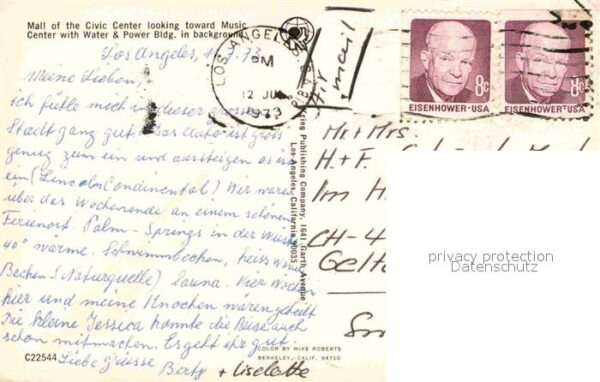 Mall of the Civic Center looking toward Music
Center with Water & Power Bldg. in background.
Los Angeles, 73
Meine Lieben,
ich fühle mich in dieser grossen
Stadt ganz gut. Das Auto ist gross
genug zum ein und aussteigen es is
ein (Lincoln Condinental) Wir waren
über das Wochenende an einem schönen
Ferienort. Palm-Springs in der Wüste
40° wärme. Schwimmbecken, heiss Wasser
Becken (Naturquelle) Sauna. Vier Wochen
hier und meine Knochen wären geheilt
Die kleine Jessica konnte die Reise auch
schon mitmachen. Es geht ihr gut.
Liebe Grüsse
Berty + Liselotte
C22544
COLOR BY MIKE ROBERTS
BERKELEY, CALIF. 94710
Publishing Company, 1641 Garth Avenue
Los Angeles, California 90035
LOS ANGELES
PM
12 JU
1973
Air
mail
8c
EISENHOWER·USA
8c
EISENHOWER·USA
Mr + Mrs.
H. + F.
Im H
CH-4
Gelt
privacy protection
Datenschutz